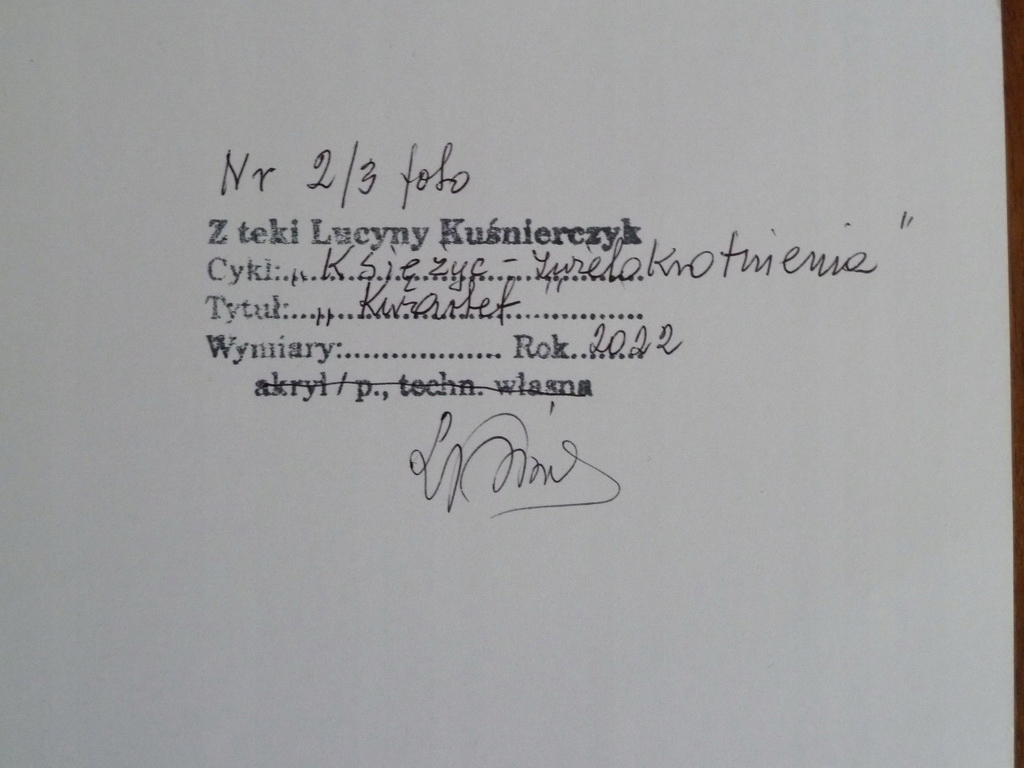 Nr 2/3 foto
Z teki Lucyny Kuśnierczyk
Cykl: „Księżyc - zwielokrotnienia"
Tytuł: „Kwartet"
Wymiary:................. Rok..2022
akryl / p., techn. własna